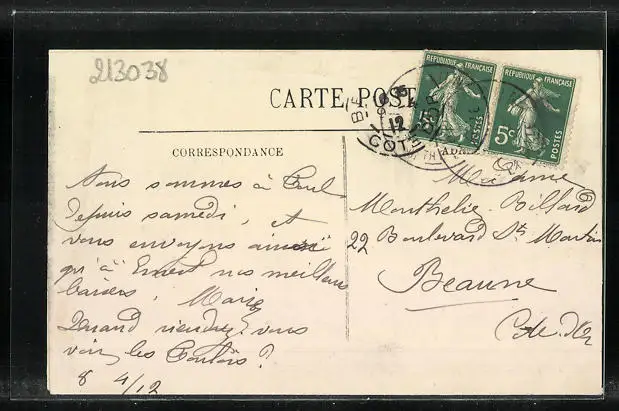 213038
CARTE POST
CORRESPONDANCE
REPUBLIQUE FRANÇAISE
POSTES
REPUBLIQUE FRANÇAISE
5c
POSTES
12
COTE
Nous sommes à
depuis samedi, et
vous envoyons
qu'à Ernest nos meilleurs
baisers, Marie
Quand viendrez vous
voir les
8 4/12
Madame
Monthelie Billard
22 Boulevard St Martin
Beaune
Cote d'Or